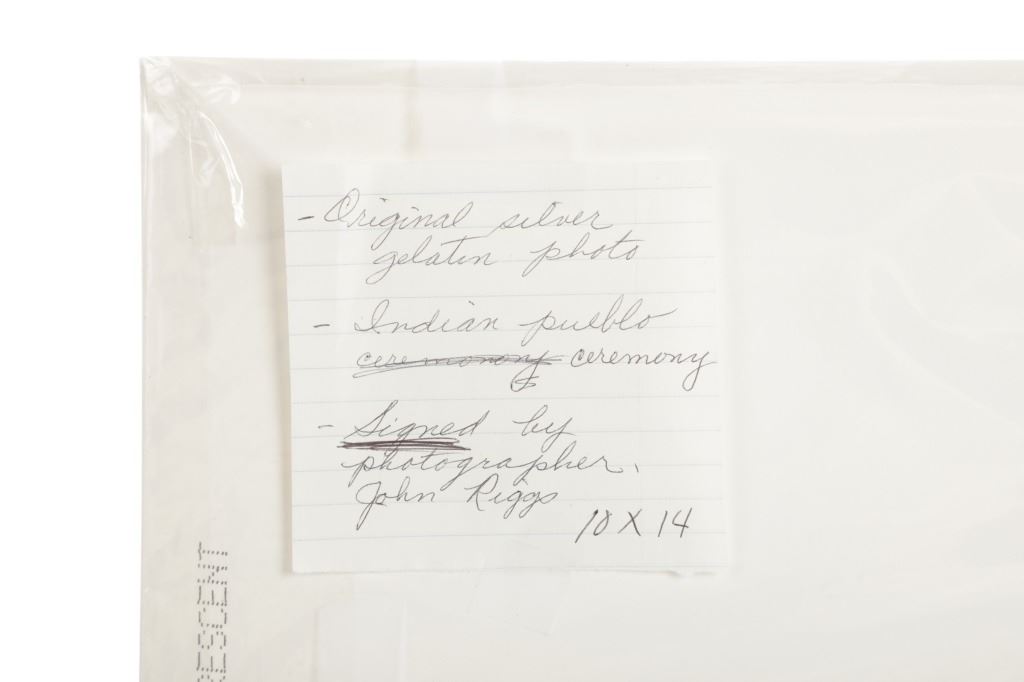 - Original silver
gelatin photo
- Indian pueblo
ceremonony ceremony
- Signed by
photographer,
John Riggs
10 X 14
RESCENT